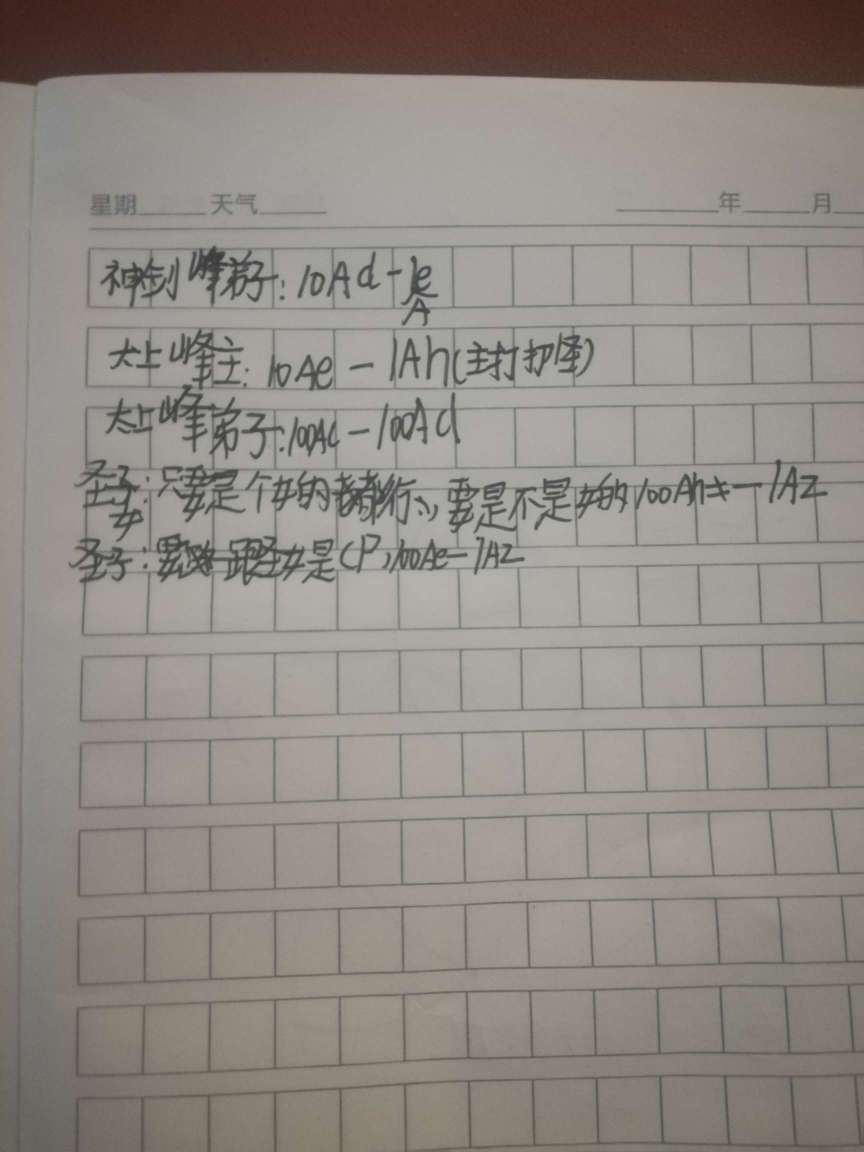 星期 天气 年 月
神剑峰弟子:10Ad-1Ae
太上峰主:10Ae-1Ah(主打抑怪)
太上峰弟子:100Ac-100Ad
圣女:只要是个女的都行,要是不是女的100Ah-1AZ
圣子:要跟圣女是CP,100Ae-1AZ